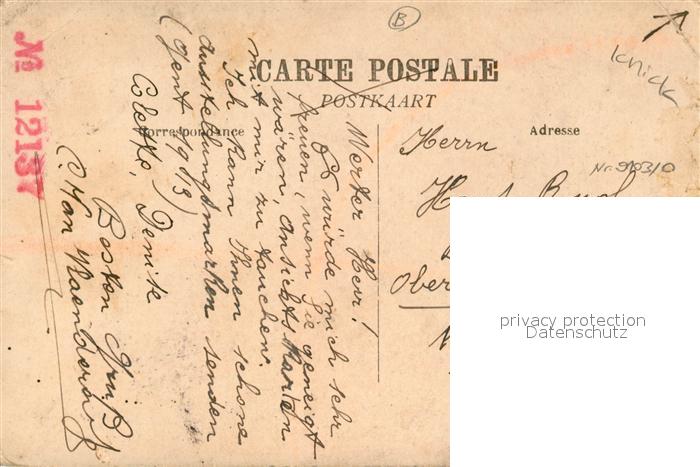 B
Knick
CARTE POSTALE
POSTKAART
Correspondance
Adresse
Nº 12137
Werter Herr!
Es würde mich sehr
freuen, wenn Sie geneigt
wären, Ansichtskarten
mit mir zu tauchen.
Ich kann Ihnen schone
Ausstellungsmarken senden
(Gent 1913)
Denise
Besten Gruß
Herrn
Ober
privacy protection
Datenschutz